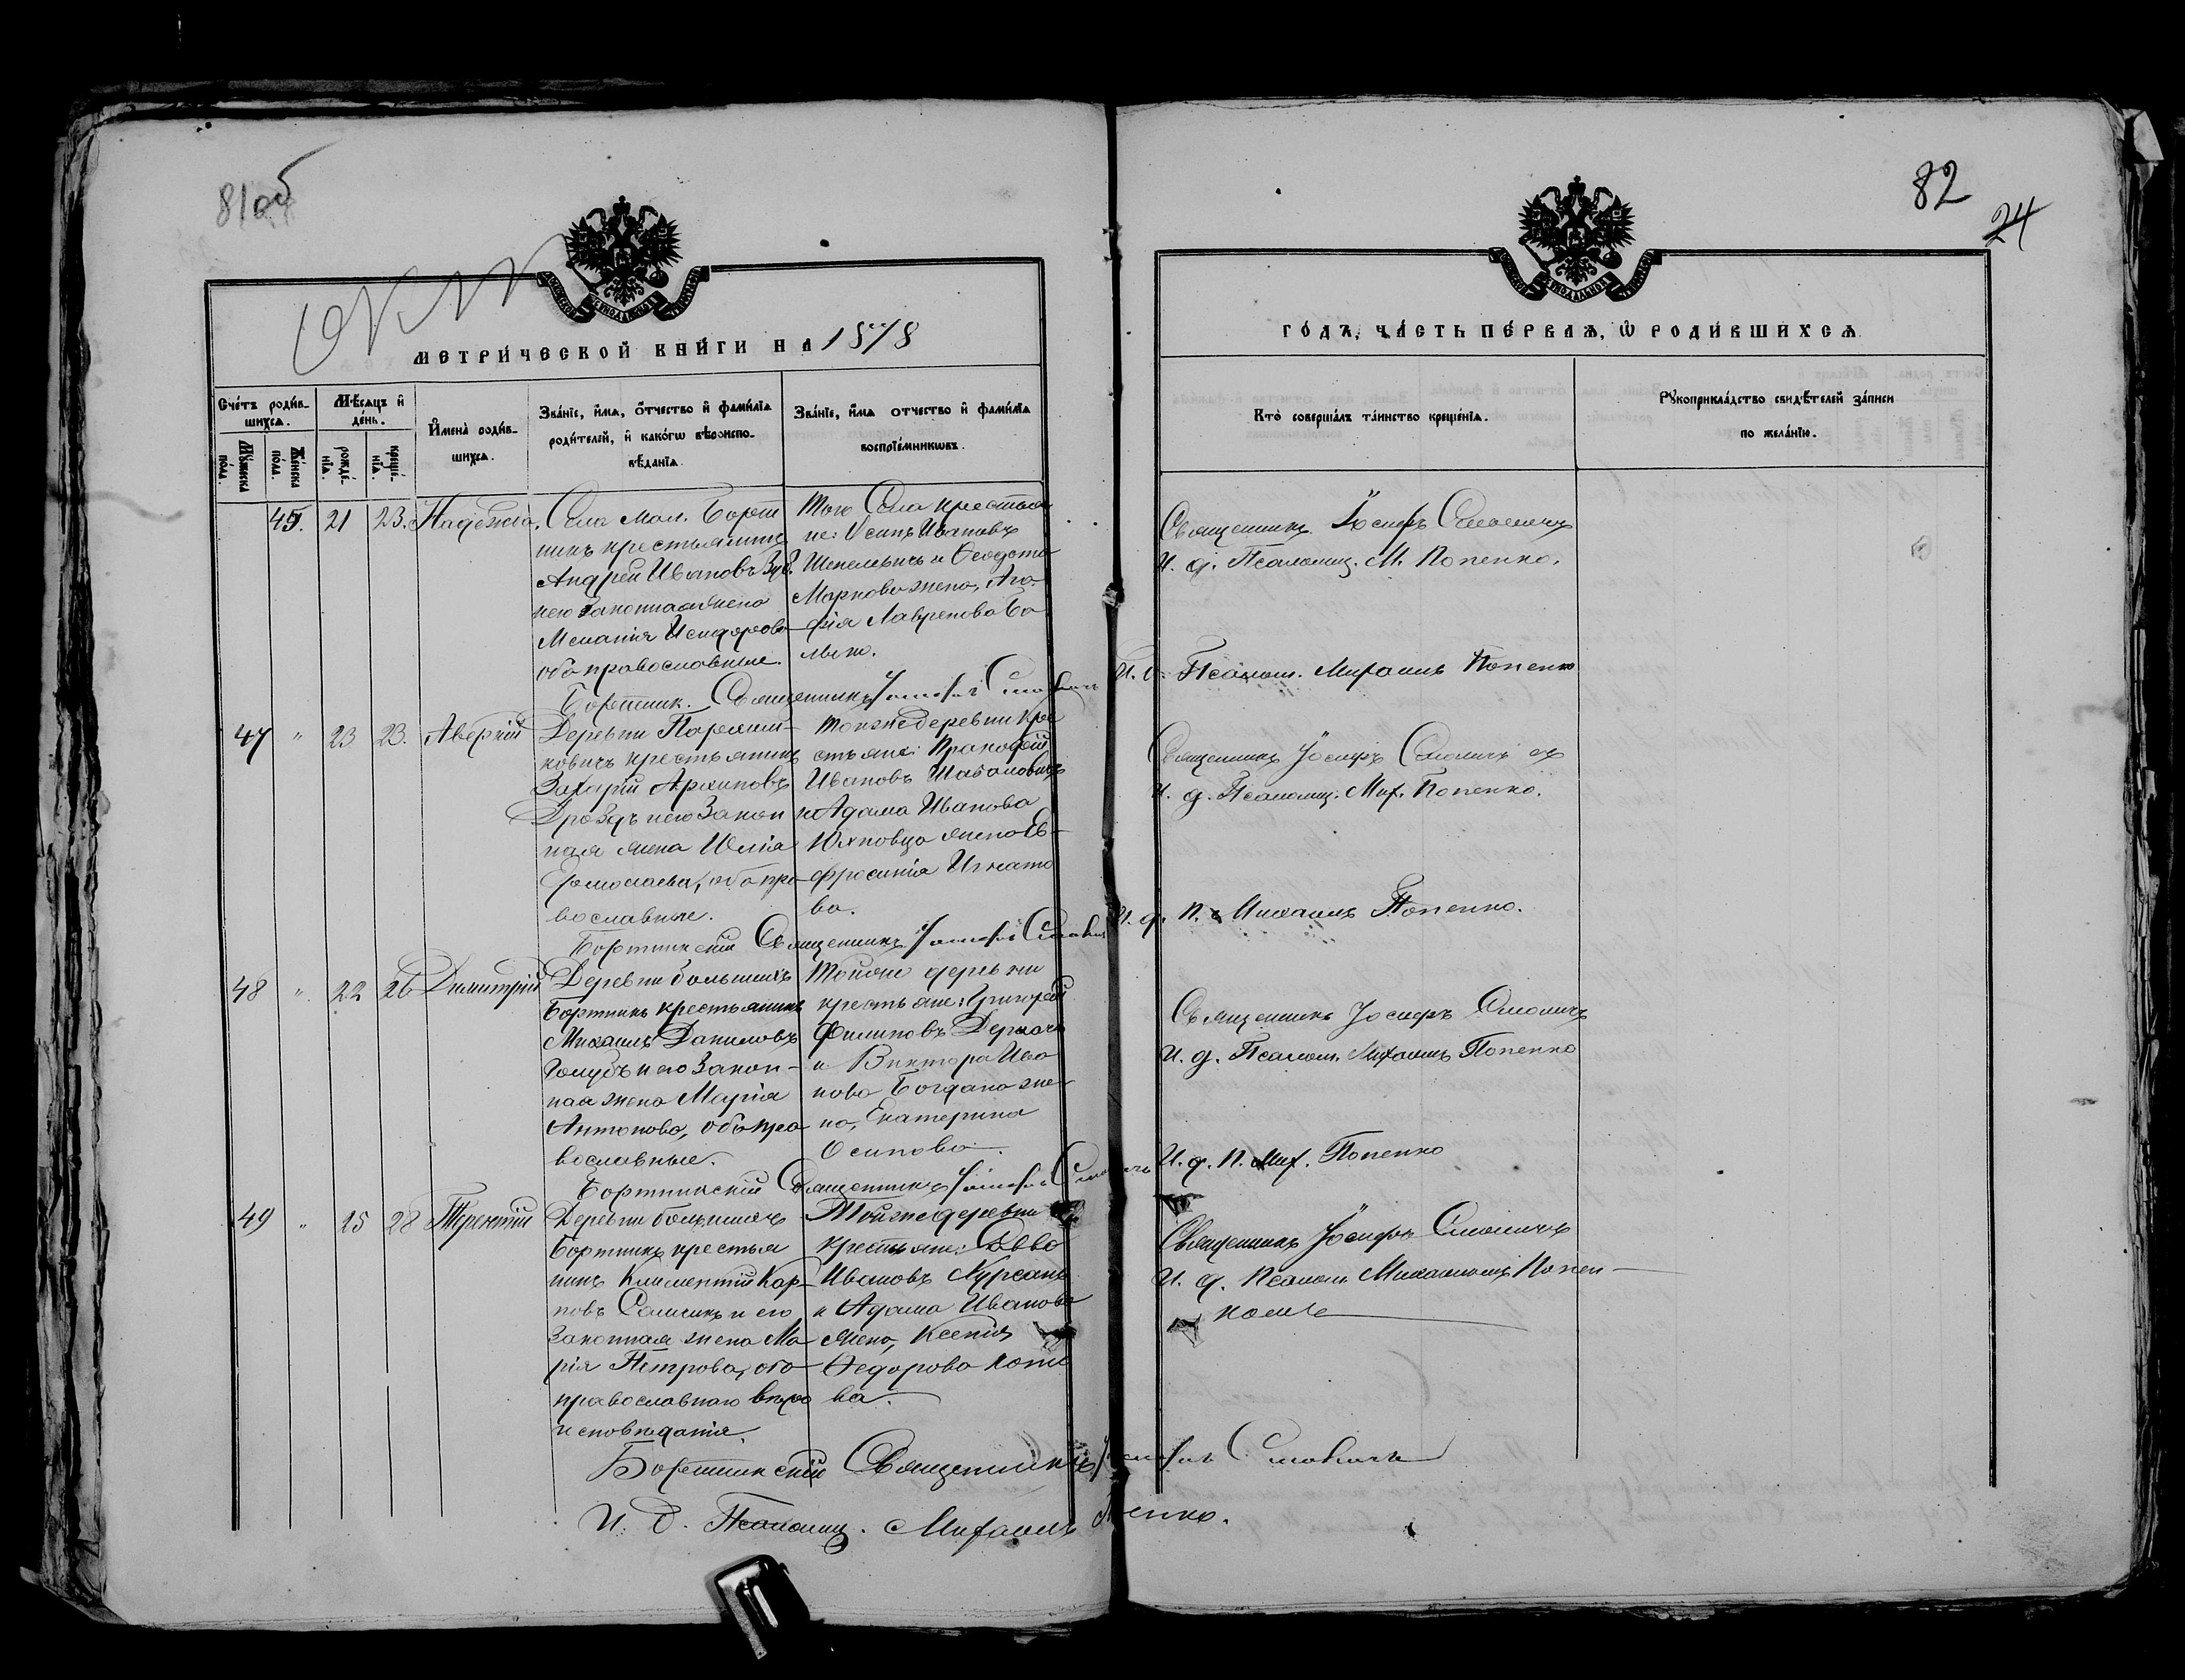 81об
82
24
Окт
МЕТРИЧЕСКОЙ КНИГИ НА 1878
ГОДЪ, ЧАСТЬ ПЕРВАЯ, Ѡ РОДИВШИХСЯ
Счетъ родив-
шихся.
Мѣсяцъ и
день.
Имена родив-
шихся.
Званіе, имя, отчество и фамилія
родителей, и какогѡ вѣроиспо-
вѣданія.
Званіе, имя отчество и фамилія
воспріемниковъ.
Мужеска
пола.
Женска
пола.
рожде-
нія.
креще-
нія.
Кто совершалъ таинство крещенія.
Рукоприкладство свидѣтелей записи
по желанію.
45. 21 23. Надежда.
Села Мал. Борт
никъ крестьянинъ
Андрей Ивановъ
его законная жена
Меланія Исидорова
оба православные.
Того Села крестья
не: Осипъ Ивановъ
Шепелевичъ и Ѳеодота
Маркова жена, Ага-
фія Лавренова
Священникъ Іосифъ Смоличъ
И. д. Псаломщ. М. Попенко.
Бортник. Священникъ Іосифъ Смоличъ И. д. Псалом. Михаилъ Попенко
47 " 23 23. Аверкій
Деревни
ковичъ крестьянинъ
Захарій Архиповъ
Дроздъ и его Закон
ная жена Юлія
Ермолаева, оба пра
вославные.
Той же деревни кре
стьяне: Прокофій
Ивановъ
и Адама Иванова
жена Ев-
фросинія Игнато
ва.
Священникъ Іосифъ Смоличъ съ
И. д. Псаломщ. Мих. Попенко.
Бортникскій Священникъ Іосифъ Смоличъ И. д. П. Михаилъ Попенко.
48 " 22 26 Димитрій
Деревни большихъ
Бортникъ крестьянинъ
Михаилъ Даниловъ
Голубъ и его Закон-
ная жена Марія
Антонова, оба пра
вославные.
Той же деревни
крестьяне: Григорій
Филиповъ Деркачъ
и Виктора Ива
нова Богдана же-
на, Екатерина
Осипова.
Священникъ Іосифъ Смоличъ
И. д. Псалом. Михаилъ Попенко
Бортникскій Священникъ Іосифъ Смоличъ И. д. П. Мих. Попенко
49 " 25 28 Терентій
Деревни большихъ
Бортникъ крестья
нинъ Климентій Кар-
повъ и его
Законная жена Ма
рія Петрова, оба
православнаго вѣро
исповѣданія.
Той же деревни
крестьяне: Савва
Ивановъ Курсанъ
и Адама Иванова
жена, Ксенія
Ѳедорова
ва.
Священникъ Іосифъ Смоличъ
И. д. Псалом Михаиломъ Попен-
комъ
Бортникскій Священникъ Іосифъ Смоличъ
И. д. Псаломщ. Михаилъ Попенко.